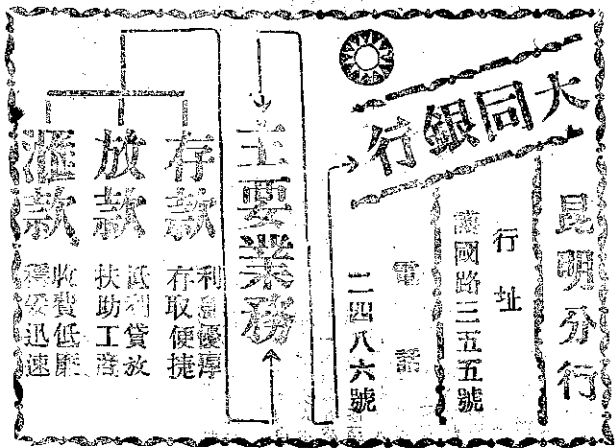 大同銀行
昆明分行
行址
護國路三五五號
電話
二四八六號
主要業務
存款
利息優厚
存取便捷
放款
低利貸放
扶助工商
滙款
收費低廉
穩妥迅速